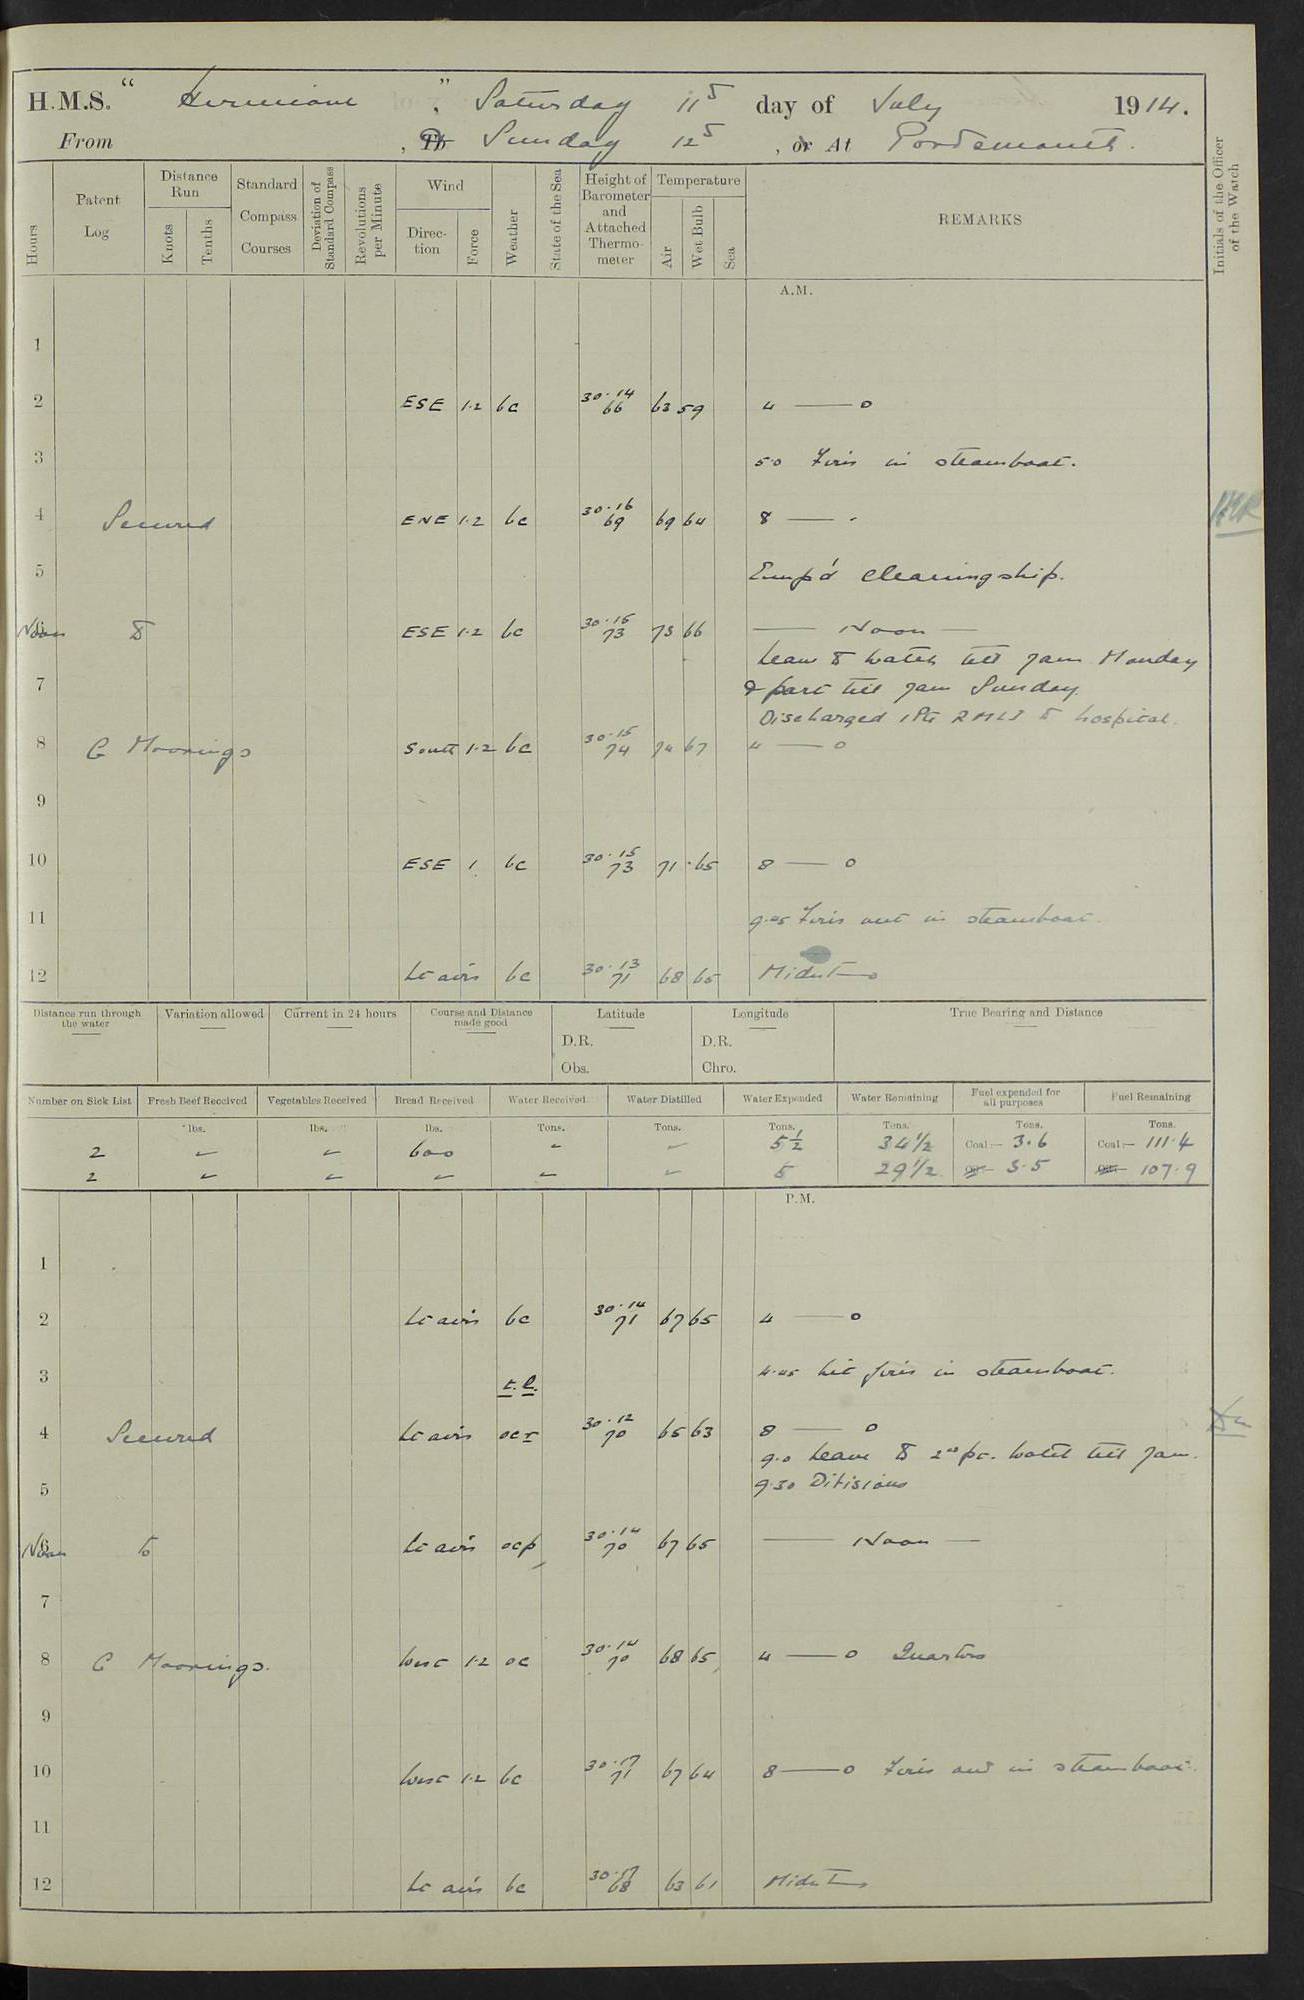 H.M.S. " Hermione ", Saturday 11th day of July 1914.
From , To Sunday 12th , or At Portsmouth.
Hours
Patent Log
Distance Run
Knots
Tenths
Standard Compass Courses
Deviation of Standard Compass
Revolutions per Minute
Wind
Direction
Force
Weather
State of the Sea
Height of Barometer and Attached Thermometer
Temperature
Air
Wet Bulb
Sea
REMARKS
Initials of the Officer of the Watch
A.M.
1
2 ESE 1.2 bc 30.14 66 63 59 4 — 0
3 5.0 Fires in steamboat.
4 Secured ENE 1.2 bc 30.16 69 69 64 8 —
5 Emp'd cleaning ship.
Noon to ESE 1.2 bc 30.16 73 73 66 — Noon —
Leave to watch till 7am Monday
7 & part till 7am Sunday.
Discharged 1 Pte RMLI to hospital.
8 C Moorings South 1.2 bc 30.15 74 74 67 4 — 0
9
10 ESE 1 bc 30.15 73 71 65 8 — 0
11 9.45 Fires out in steamboat.
12 Lt airs bc 30.13 71 68 65 Midnt
Distance run through the water
Variation allowed
Current in 24 hours
Course and Distance made good
Latitude
D.R.
Obs.
Longitude
D.R.
Chro.
True Bearing and Distance
Number on Sick List
Fresh Beef Received
Vegetables Received
Bread Received
Water Received
Water Distilled
Water Expended
Water Remaining
Fuel expended for all purposes
Fuel Remaining
lbs. lbs. lbs. Tons. Tons. Tons. Tons. Tons. Tons.
2 – – 600 – – 5½ 34½ Coal:– 3.6 Coal:– 111.4
2 – – – – – 5 29½ 3.5 107.9
P.M.
1
2 Lt airs bc 30.14 71 67 65 4 — 0
3 t.l. 4.45 Lit fires in steamboat.
4 Secured Lt airs ocr 30.12 70 65 63 8 — 0
9.0 Leave to 2nd pt. watch till 7am.
5 9.30 Divisions
Noon to Lt airs ocp 30.14 70 67 65 — Noon —
7
8 C Moorings. West 1.2 oc 30.14 70 68 65 4 — 0 Quarters
9
10 West 1.2 bc 30.17 71 67 64 8 — 0 Fires out in steamboat.
11
12 Lt airs bc 30.17 68 63 61 Midnt